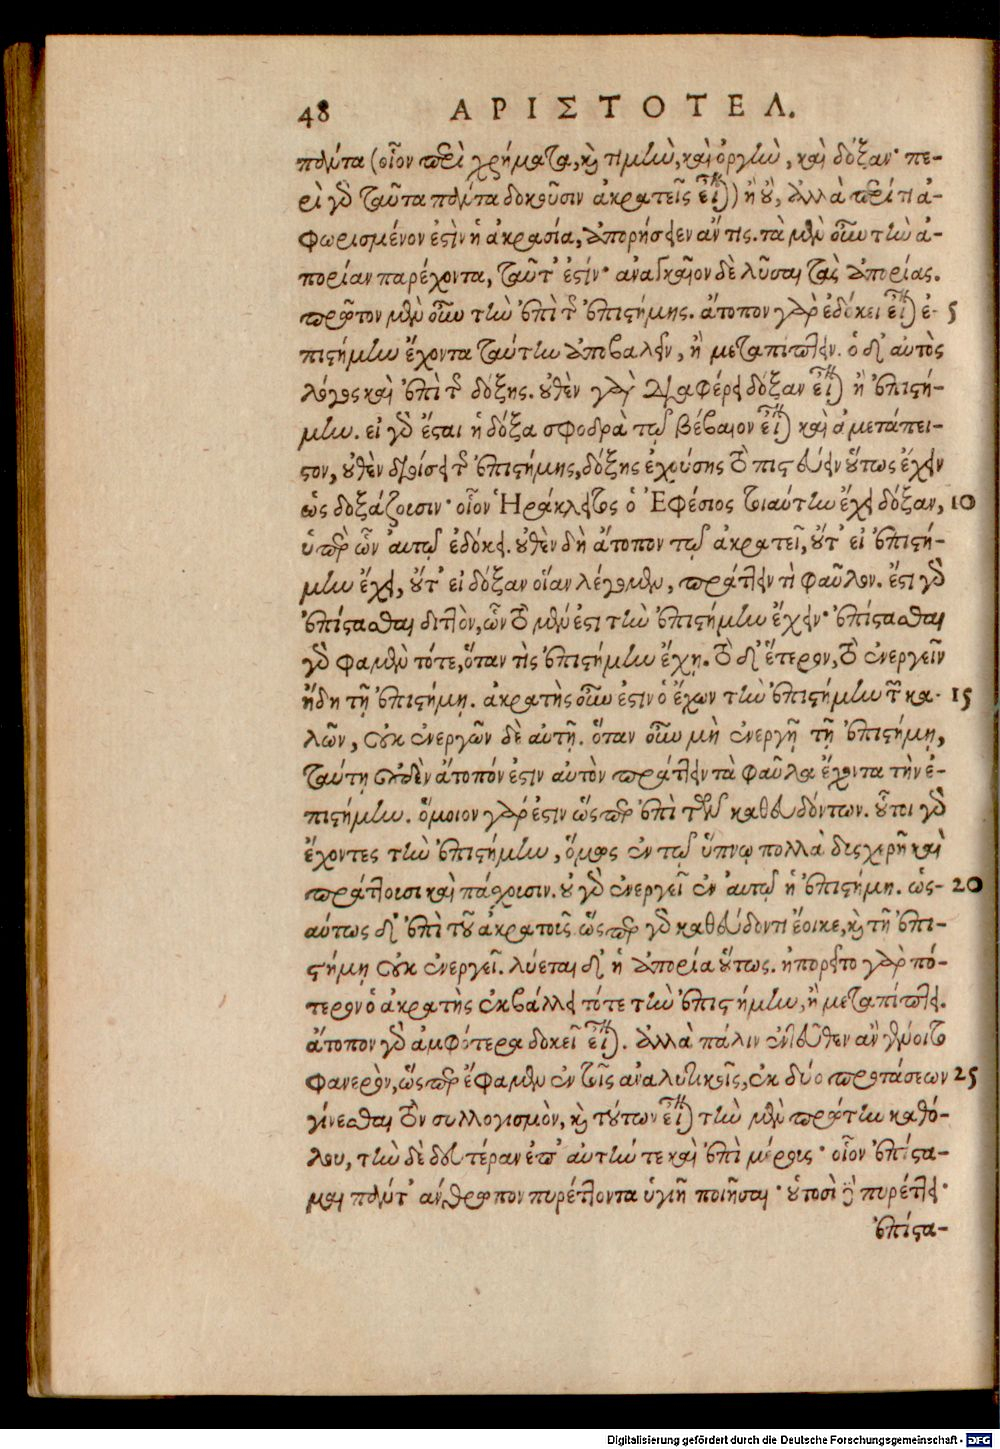 48 ΑΡΙΣΤΟΤΕΛ.
πάντα (οἷον περὶ χρήματα, καὶ τιμὴν, καὶ ὀργὴν, καὶ δόξαν· πε-
ρὶ γὸ ταῦτα πάντα δοκοῦσιν ἀκρατεῖς εἶναι) ἢ οὔ, ἀλλὰ περί τι ἀ-
φωρισμένον ἐστὶν ἡ ἀκρασία, ἀπορήσειεν ἄν τις. τὰ μὲν οὖν τὴν ἀ-
πορίαν παρέχοντα, ταῦτ' ἐστίν· ἀναγκαῖον δὲ λῦσαι τὰς ἀπορίας.
πρῶτον μὲν οὖν τὴν ἐπὶ τῆς ἐπιστήμης. ἄτοπον γὰρ ἐδόκει εἶναι ἐ- 5
πιστήμην ἔχοντα ταύτην ἀποβαλεῖν, ἢ μεταπίπτειν. ὁ δ' αὐτὸς
λόγος καὶ ἐπὶ τῆς δόξης. οὐθὲν γὰρ διαφέρει δόξαν εἶναι ἢ ἐπιστή-
μην. εἰ γὰρ ἔσται ἡ δόξα σφοδρὰ τῷ βέβαιον εἶναι καὶ ἀμετάπει-
στον, οὐθὲν διοίσει τῆς ἐπιστήμης, δόξης ἐχούσης τὸ πιστεύειν οὕτως ἔχειν
ὡς δοξάζουσιν· οἷον Ἡράκλειτος ὁ Ἐφέσιος τοιαύτην ἔχει δόξαν, 10
ὑπὲρ ὧν αὐτῷ ἐδόκει. οὐθὲν δὴ ἄτοπον τῷ ἀκρατεῖ, οὔτ' εἰ ἐπιστή-
μην ἔχει, οὔτ' εἰ δόξαν οἵαν λέγομεν, πράττειν τὶ φαῦλον. ἔστι γὰρ
ἐπίστασθαι διττὸν, ὧν τὸ μέν ἐστι τὴν ἐπιστήμην ἔχειν· ἐπίστασθαι
γὰρ φαμὲν τότε, ὅταν τὶς ἐπιστήμην ἔχῃ. τὸ δ' ἕτερον, τὸ ἐνεργεῖν
ἤδη τῇ ἐπιστήμῃ. ἀκρατὴς οὖν ἐστὶν ὁ ἔχων τὴν ἐπιστήμην τῶν κα- 15
λῶν, οὐκ ἐνεργῶν δὲ αὐτῇ. ὅταν οὖν μὴ ἐνεργῇ τῇ ἐπιστήμῃ,
ταύτῃ οὐδὲν ἄτοπόν ἐστιν αὐτὸν πράττειν τὰ φαῦλα ἔχοντα τὴν ἐ-
πιστήμην. ὅμοιον γάρ ἐστιν ὥσπερ ἐπὶ τῶν καθευδόντων. οὗτοι γὰρ
ἔχοντες τὴν ἐπιστήμην, ὅμως ἐν τῷ ὕπνῳ πολλὰ δυσχερῆ καὶ
πράττουσι καὶ πάσχουσιν. οὐ γὰρ ἐνεργεῖ ἐν αὐτῷ ἡ ἐπιστήμη. ὡσ- 20
αύτως δ' ἐπὶ τοῦ ἀκρατοῦς ὥσπερ γὰρ καθεύδοντι ἔοικε, καὶ τῇ ἐπι-
στήμῃ οὐκ ἐνεργεῖ. λύεται δ' ἡ ἀπορία οὕτως. ἠπορεῖτο γὰρ πό-
τερον ὁ ἀκρατὴς ἐκβάλλει τότε τὴν ἐπιστήμην, ἢ μεταπίπτει.
ἄτοπον γὰρ ἀμφότερα δοκεῖ εἶναι. ἀλλὰ πάλιν ἐντεῦθεν ἂν γένοιτο
φανερὸν, ὥσπερ ἔφαμεν ἐν τοῖς ἀναλυτικοῖς, ἐκ δύο προτάσεων 25
γίνεσθαι τὸν συλλογισμὸν, καὶ τούτων εἶναι τὴν μὲν πρώτην καθό-
λου, τὴν δὲ δευτέραν ὑπ' αὐτήν τε καὶ ἐπὶ μέρους· οἷον ἐπίστα-
μαι πάντ' ἄνθρωπον πυρέττοντα ὑγιῆ ποιῆσαι· οὑτοσὶ δὲ πυρέττει·
ἐπίστα-
Digitalisierung gefördert durch die Deutsche Forschungsgemeinschaft - DFG